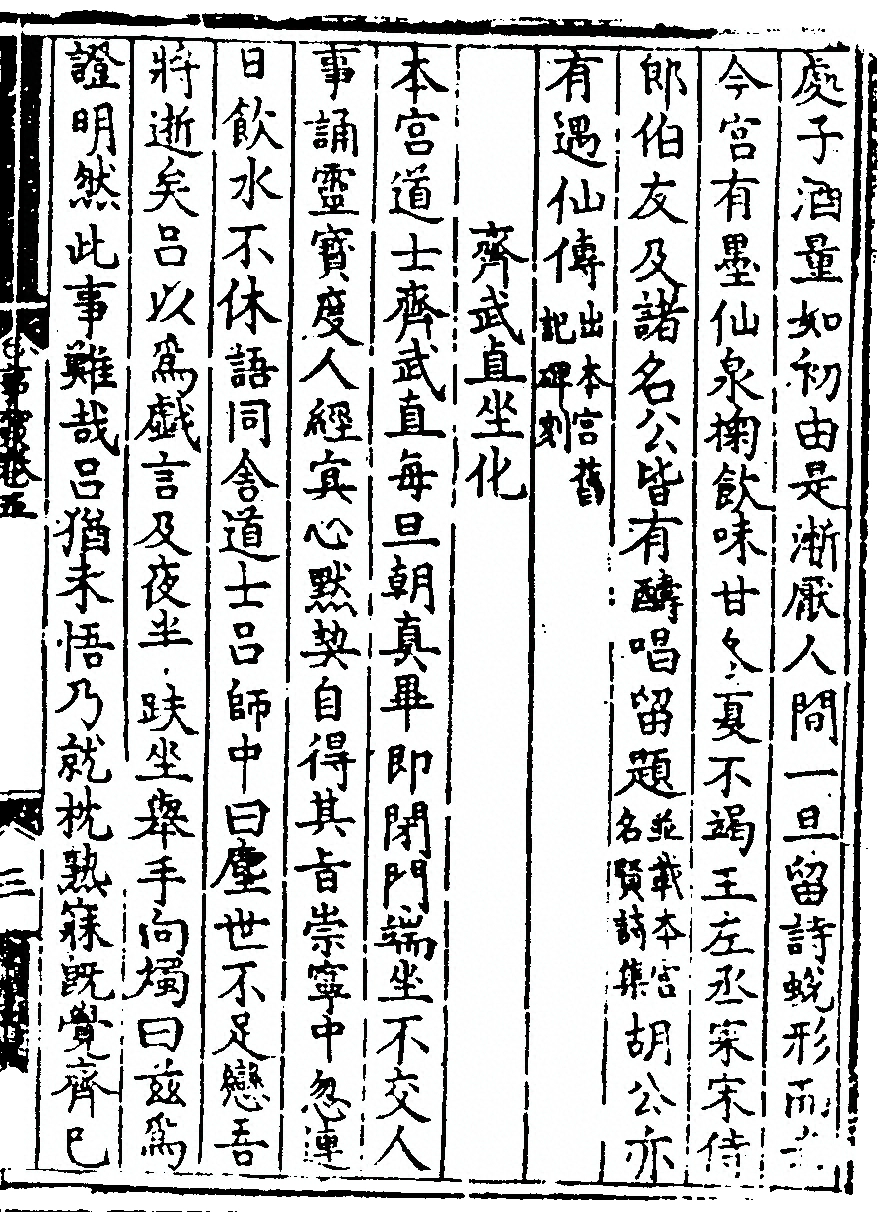 處子酒量如初由是漸厭人間一旦留詩蛻形而去
今宮有墨仙泉掬飲味甘冬夏不竭王左丞寀宋侍
郎伯友及諸名公皆有酬唱留題並載本宮名賢詩集胡公亦
有遇仙傳出本宮舊記碑刻
齊武真坐化
本宮道士齊武真每旦朝真畢即閉門端坐不交人
事誦靈寶度人經寘心默契自得其旨崇寧中忽連
日飲水不休語同舍道士呂師中曰塵世不足戀吾
將逝矣呂以為戲言及夜半趺坐舉手向燭曰茲為
證明然此事難哉呂猶未悟乃就枕熟寐既覺齊已
三